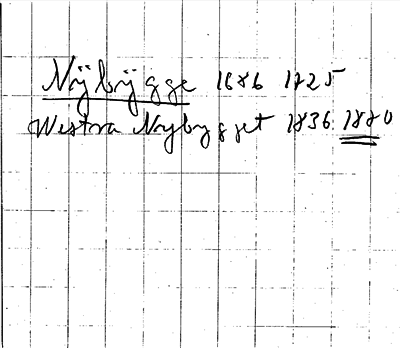 Nÿbÿgge 1686 1825
Westra Nybygget 1836 1880